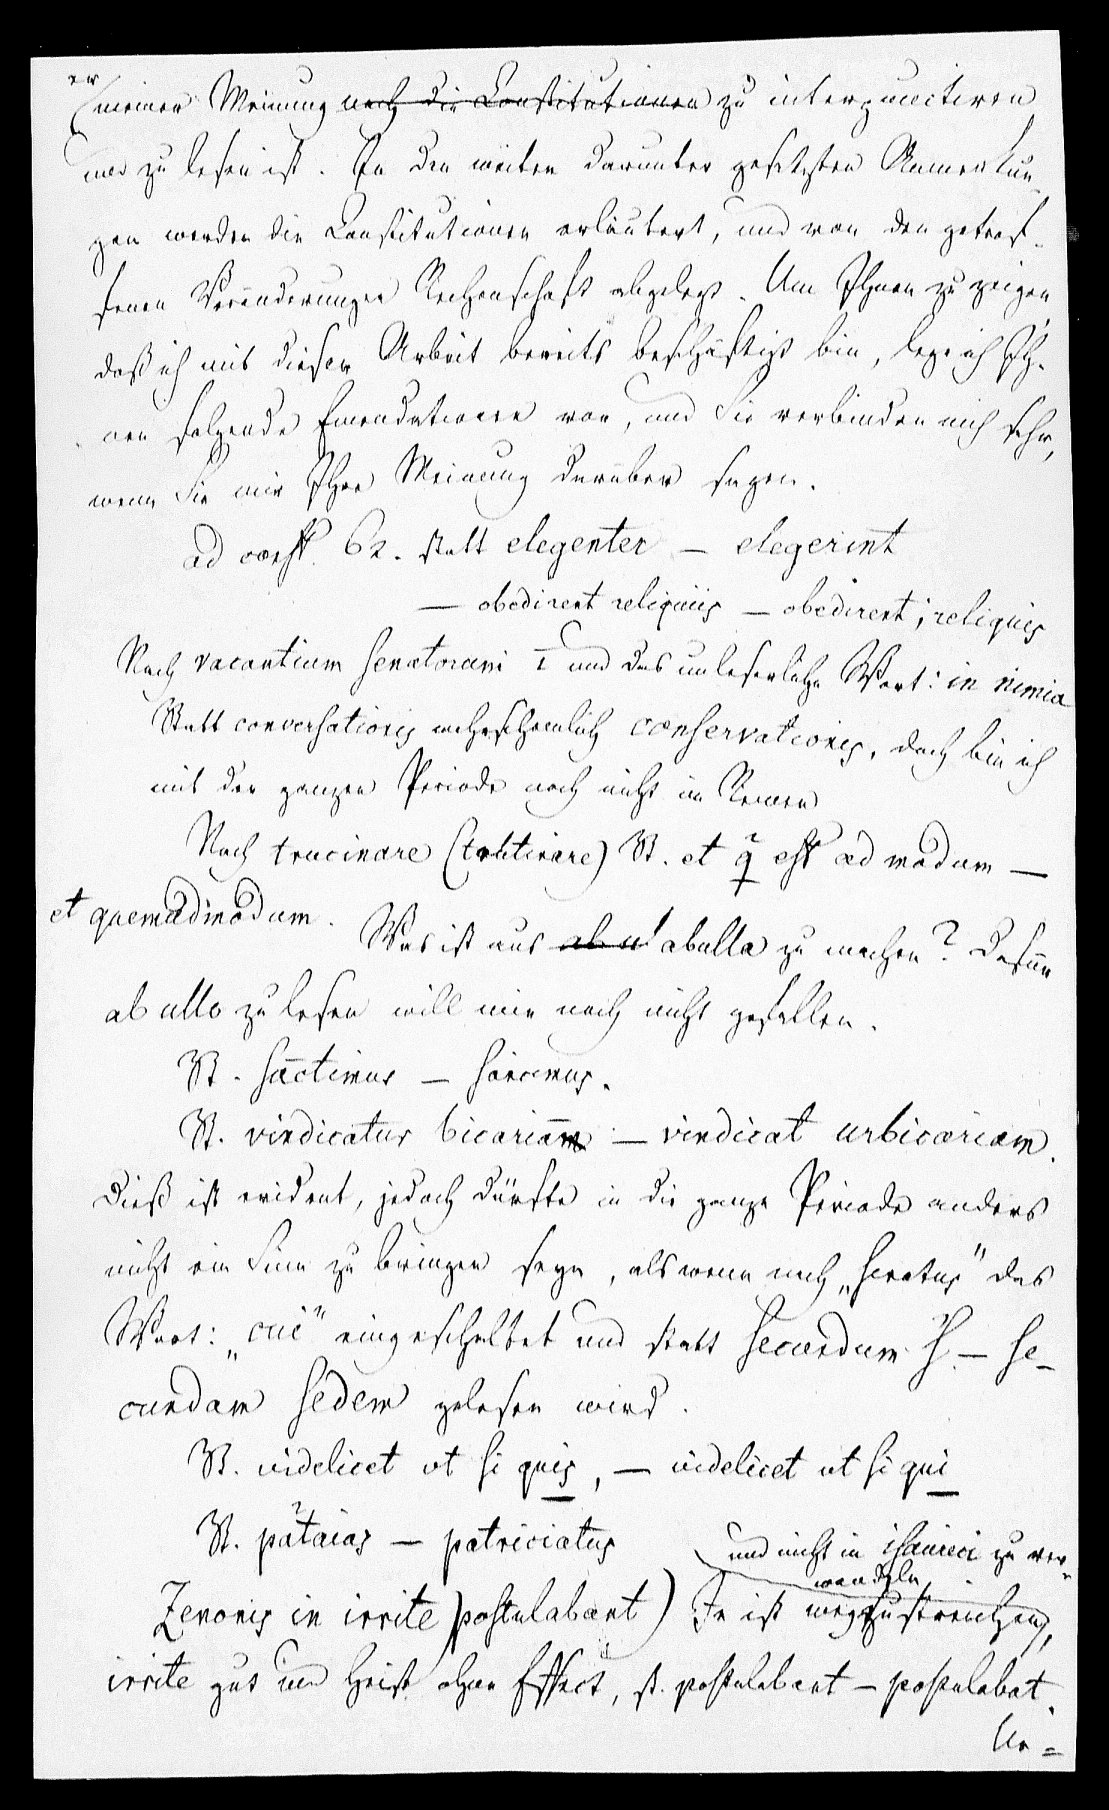 meiner Meinung nach die Constitutionen zu interpunctiren
und zu lesen ist. In den weiter darunter gesetzten Anmerkun-
gen werden die Constitutionen erläutert, und von den getrof-
fenen Veränderungen Rechenschaft abgelegt. Um Ihnen zu zeigen,
daß ich mit dieser Arbeit bereits beschäftigt bin, lege ich Ih-
nen folgende Emendationen vor, und Sie verbinden mich sehr,
wenn Sie mir Ihre Meinung darüber sagen.
ad const. 62. statt elegenter – elegerint
– obedirent reliquiis – obedirent; reliquis
Nach vacantium senatorum und das unleserliche Wort: in nimia
Statt conversationis wahrscheinlich conservationis, doch bin ich
mit der ganzen Periode noch nicht im Reinen
Nach trucinare (trutinare) St. et q est ad modum –
et quemadmodum. Was ist aus abulla zu machen? Dafür
ab ullo zu lesen will mir noch nicht gefallen.
St. sanctimus – sancimus.
St. vindicatur bicariam – vindicat urbicariam.
Dieß ist evident, jedoch dürfte in die ganze Periode anders
nicht ein Sinn zu bringen seyn, als wenn nach „senatus" das
Wort: „cui" eingeschaltet und statt secundum S. – se-
cundam sedem gelesen wird.
St. videlicet ut si quis, – videlicet ut si qui
St. pataias – patriciatus
und nicht in isaurici zu ver-
wandeln
Zenonis in irrite postulabant) In ist wegzustreichen,
irrite gut und heist ohne Effect, st. postulabant – postulabat.
Un=